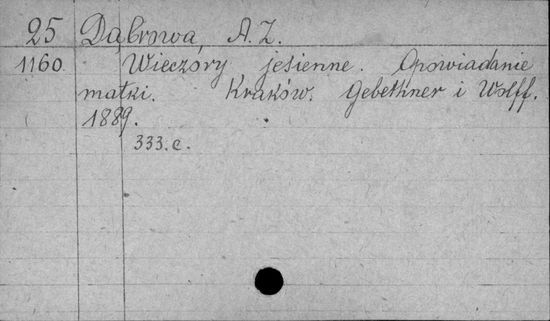 25 Dąbrowa, A. Z.
1160 Wieczóry jesienne. Opowiadanie
matki. Kraków. Gebethner i Wolff.
1889.
333. c.